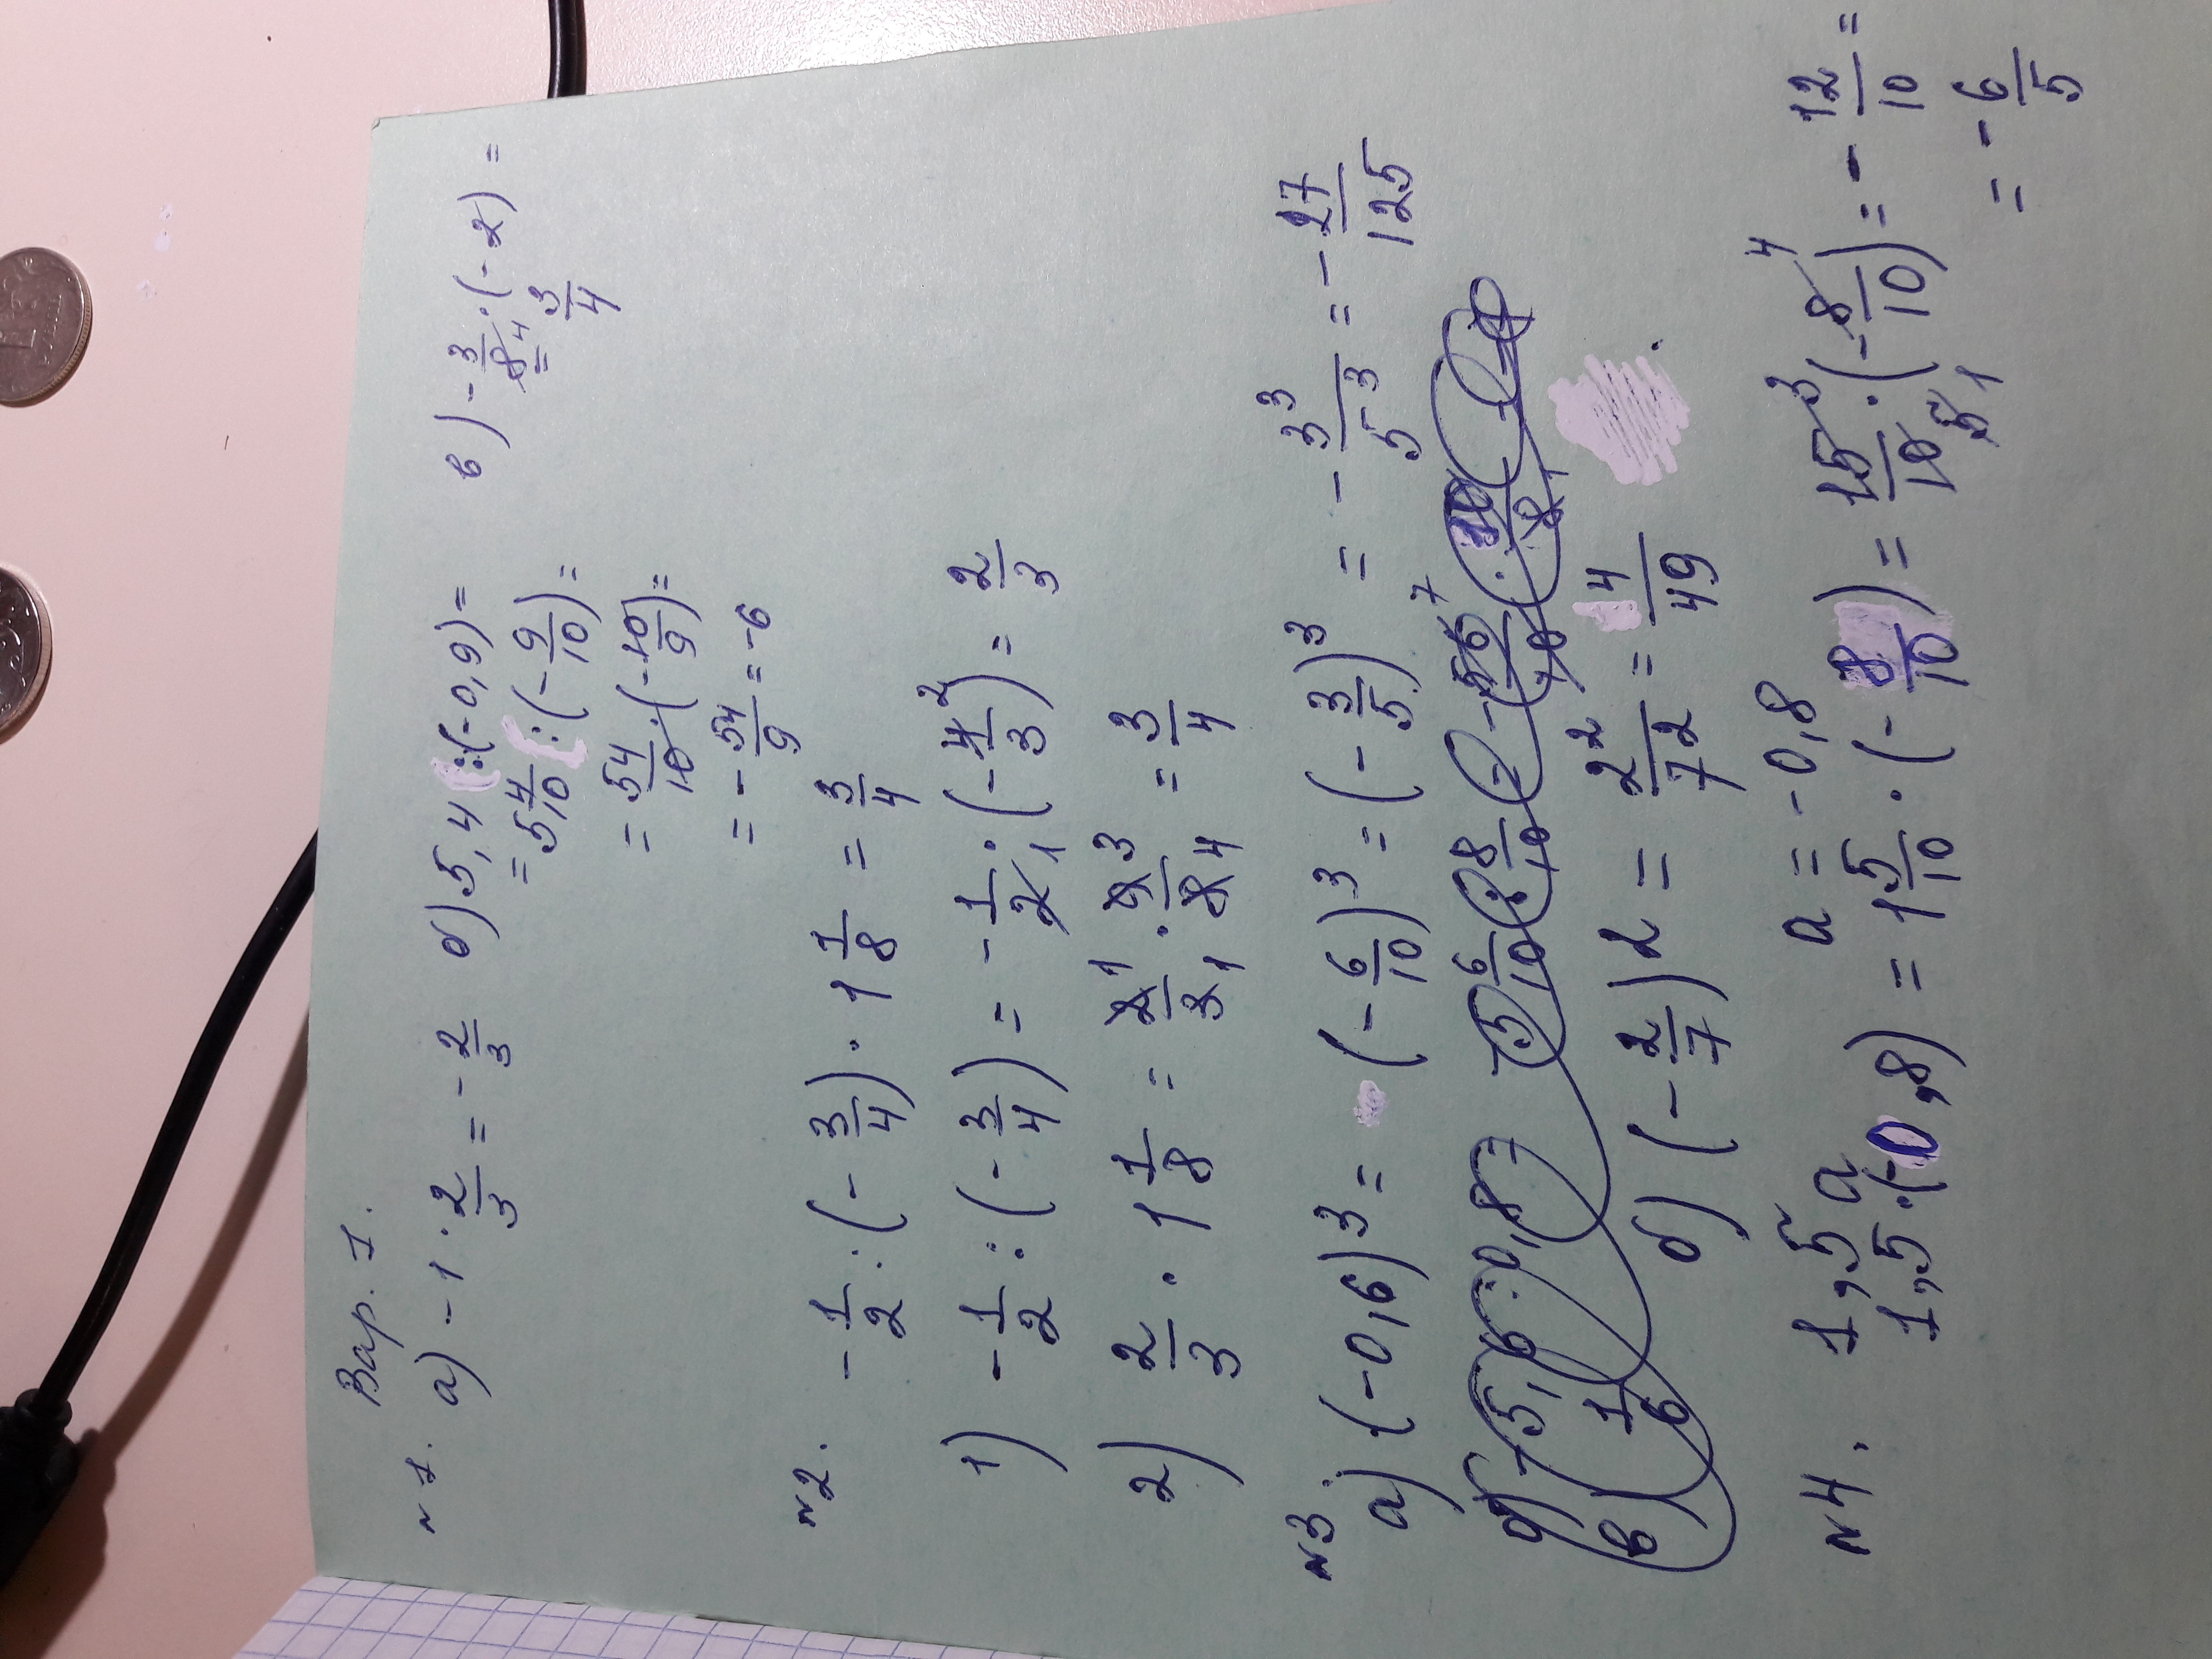 Вар. 1.
N1. а) -1 · 2/3 = -2/3 б) 5,4 : (-0,9) = в) -3/8 · (-2) =
= 5 4/10 : (-9/10) = = 3/4
= 54/10 · (-10/9) =
= -54/9 = -6
N2. -1/2 : (-3/4) · 1 1/8 = 3/4
1) -1/2 : (-3/4) = -1/2 · (-4/3) = 2/3
2) 2/3 · 1 1/8 = 2/3 · 9/8 = 3/4
N3
а) (-0,6)³ = (-6/10)³ = (-3/5)³ = -3³/5³ = -27/125
б) (-2/7)² = 2²/7² = 4/49
N4. 1,5a a = -0,8
1,5 · (-0,8) = 1 5/10 · (-8/10) = 15/10 · (-8/10) = -12/10 =
= -6/5